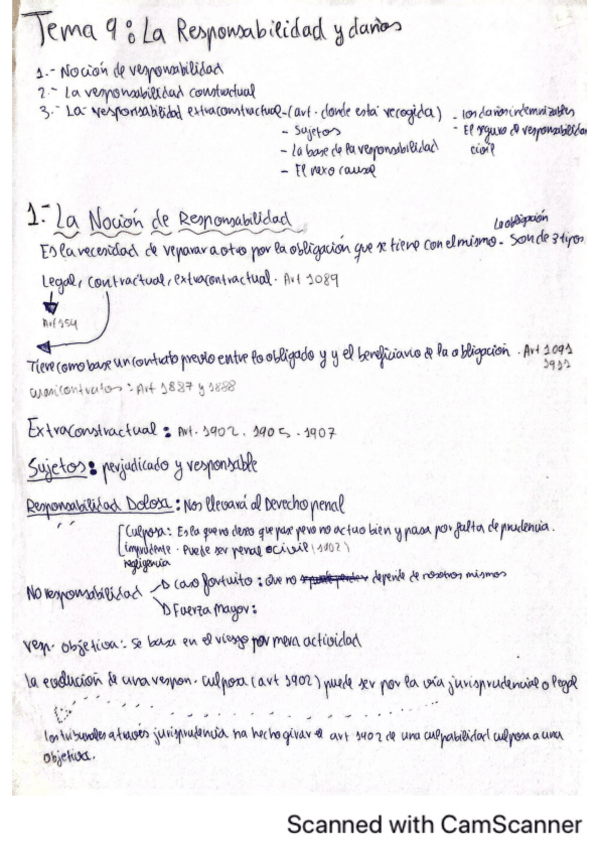 Tema 9: La Responsabilidad y daños
1.- Noción de responsabilidad
2.- La responsabilidad constractual
3.- La responsabilidad extraconstractual - (art. donde está recogida) - los daños indemnizables
- Sujetos - El seguro de responsabilidad
- La base de la responsabilidad civil
- El nexo cause
1.- La Noción de Responsabilidad
La obligación
Es la necesidad de reparar a otro por la obligación que se tiene con el mismo - Son de 3 tipos
Legal, contractual, extracontractual. Art 1089
Art 154
Tiene como base un contrato previo entre lo obligado y y el beneficiario de la obligación. Art 1091
1911
cuasicontratos: Art 1887 y 1888
Extraconstractual: Art. 1902. 1905. 1907
Sujetos: perjudicado y responsable
Responsabilidad Dolosa: Nos llevará al Derecho penal
" Culposa: Es la que no deseo que pase pero no actuo bien y pasa por falta de prudencia.
imprudente. Puede ser penal o civil (1902)
negligencia
No responsabilidad → Caso fortuito: Que no depende de nosotros mismos
→ Fuerza Mayor:
resp. objetiva: se basa en el riesgo por mera actividad
la evolución de una respon. culposa (art 1902) puede ser por la vía jurisprudencial o legal
los tribunales a través jurisprudencia ha hecho girar el art 1902 de una culpabilidad culposa a una
objetiva.
Scanned with CamScanner